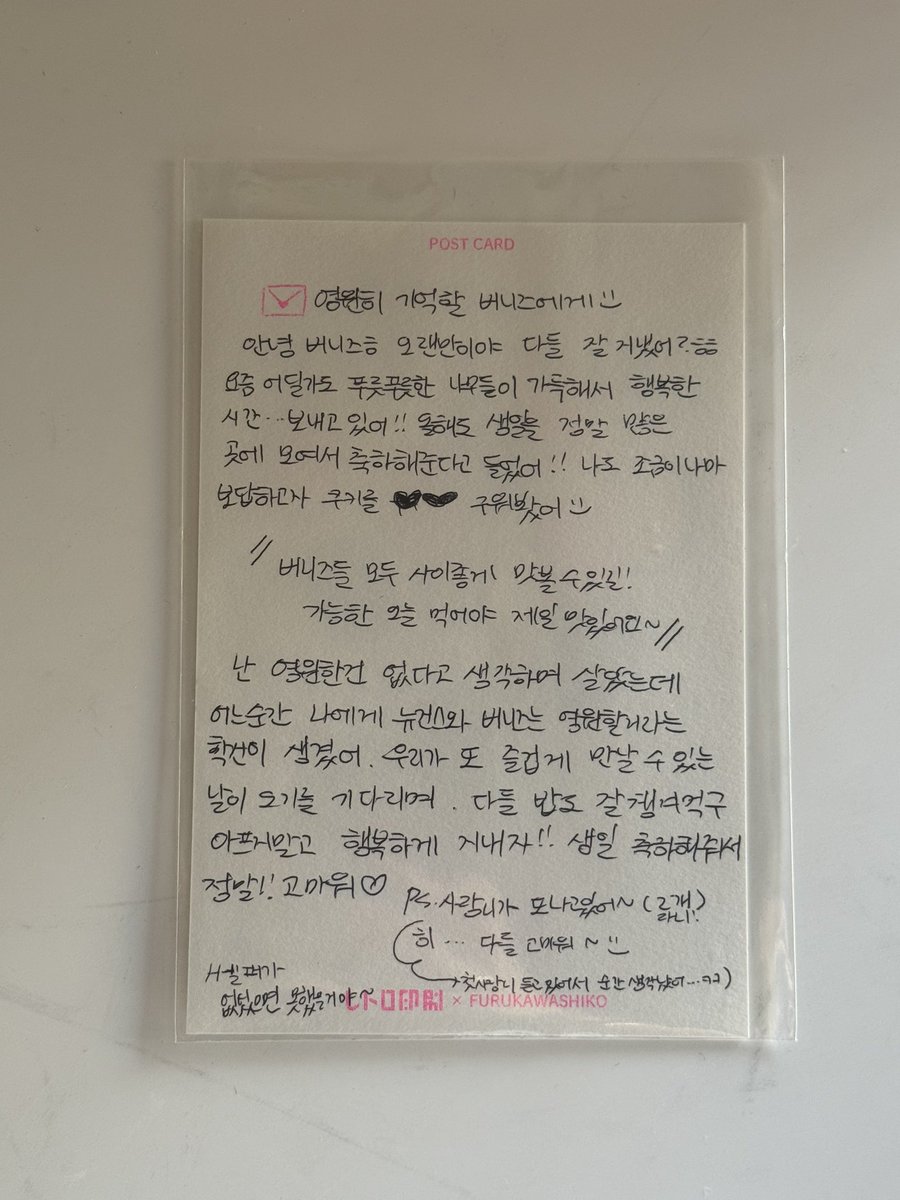 POST CARD
영원히 기억할 버니즈에게
안녕 버니즈ㅎ 오랜만이야 다들 잘 지냈어?ㅎㅎ
요즘 어딜가도 푸릇푸릇한 나무들이 가득해서 행복한
시간… 보내고 있어!! 올해도 생일을 정말 많은
곳에 모여서 축하해준다고 들었어!! 나도 조금이나마
보답하고자 쿠키를 구워봤어
〃 버니즈들 모두 사이좋게 맛볼 수 있길!
가능한 오늘 먹어야 제일 맛있어요~ 〃
난 영원한건 없다고 생각하며 살았는데
어느순간 나에게 뉴진스와 버니즈는 영원할거라는
확신이 생겼어. 우리가 또 즐겁게 만날 수 있는
날이 오기를 기다리며. 다들 밥도 잘 챙겨먹구
아프지말고 행복하게 지내자!! 생일 축하해줘서
정말!! 고마워♡
PS. 사랑니가 또 나고있어~ (2개라니!)
히… 다들 고마워~
→첫사랑니 듣고 있어서 순간 생각났어…ㅋㅋ)
헬퍼가
없었으면 못했을거야~
レトロ印刷 × FURUKAWASHIKO